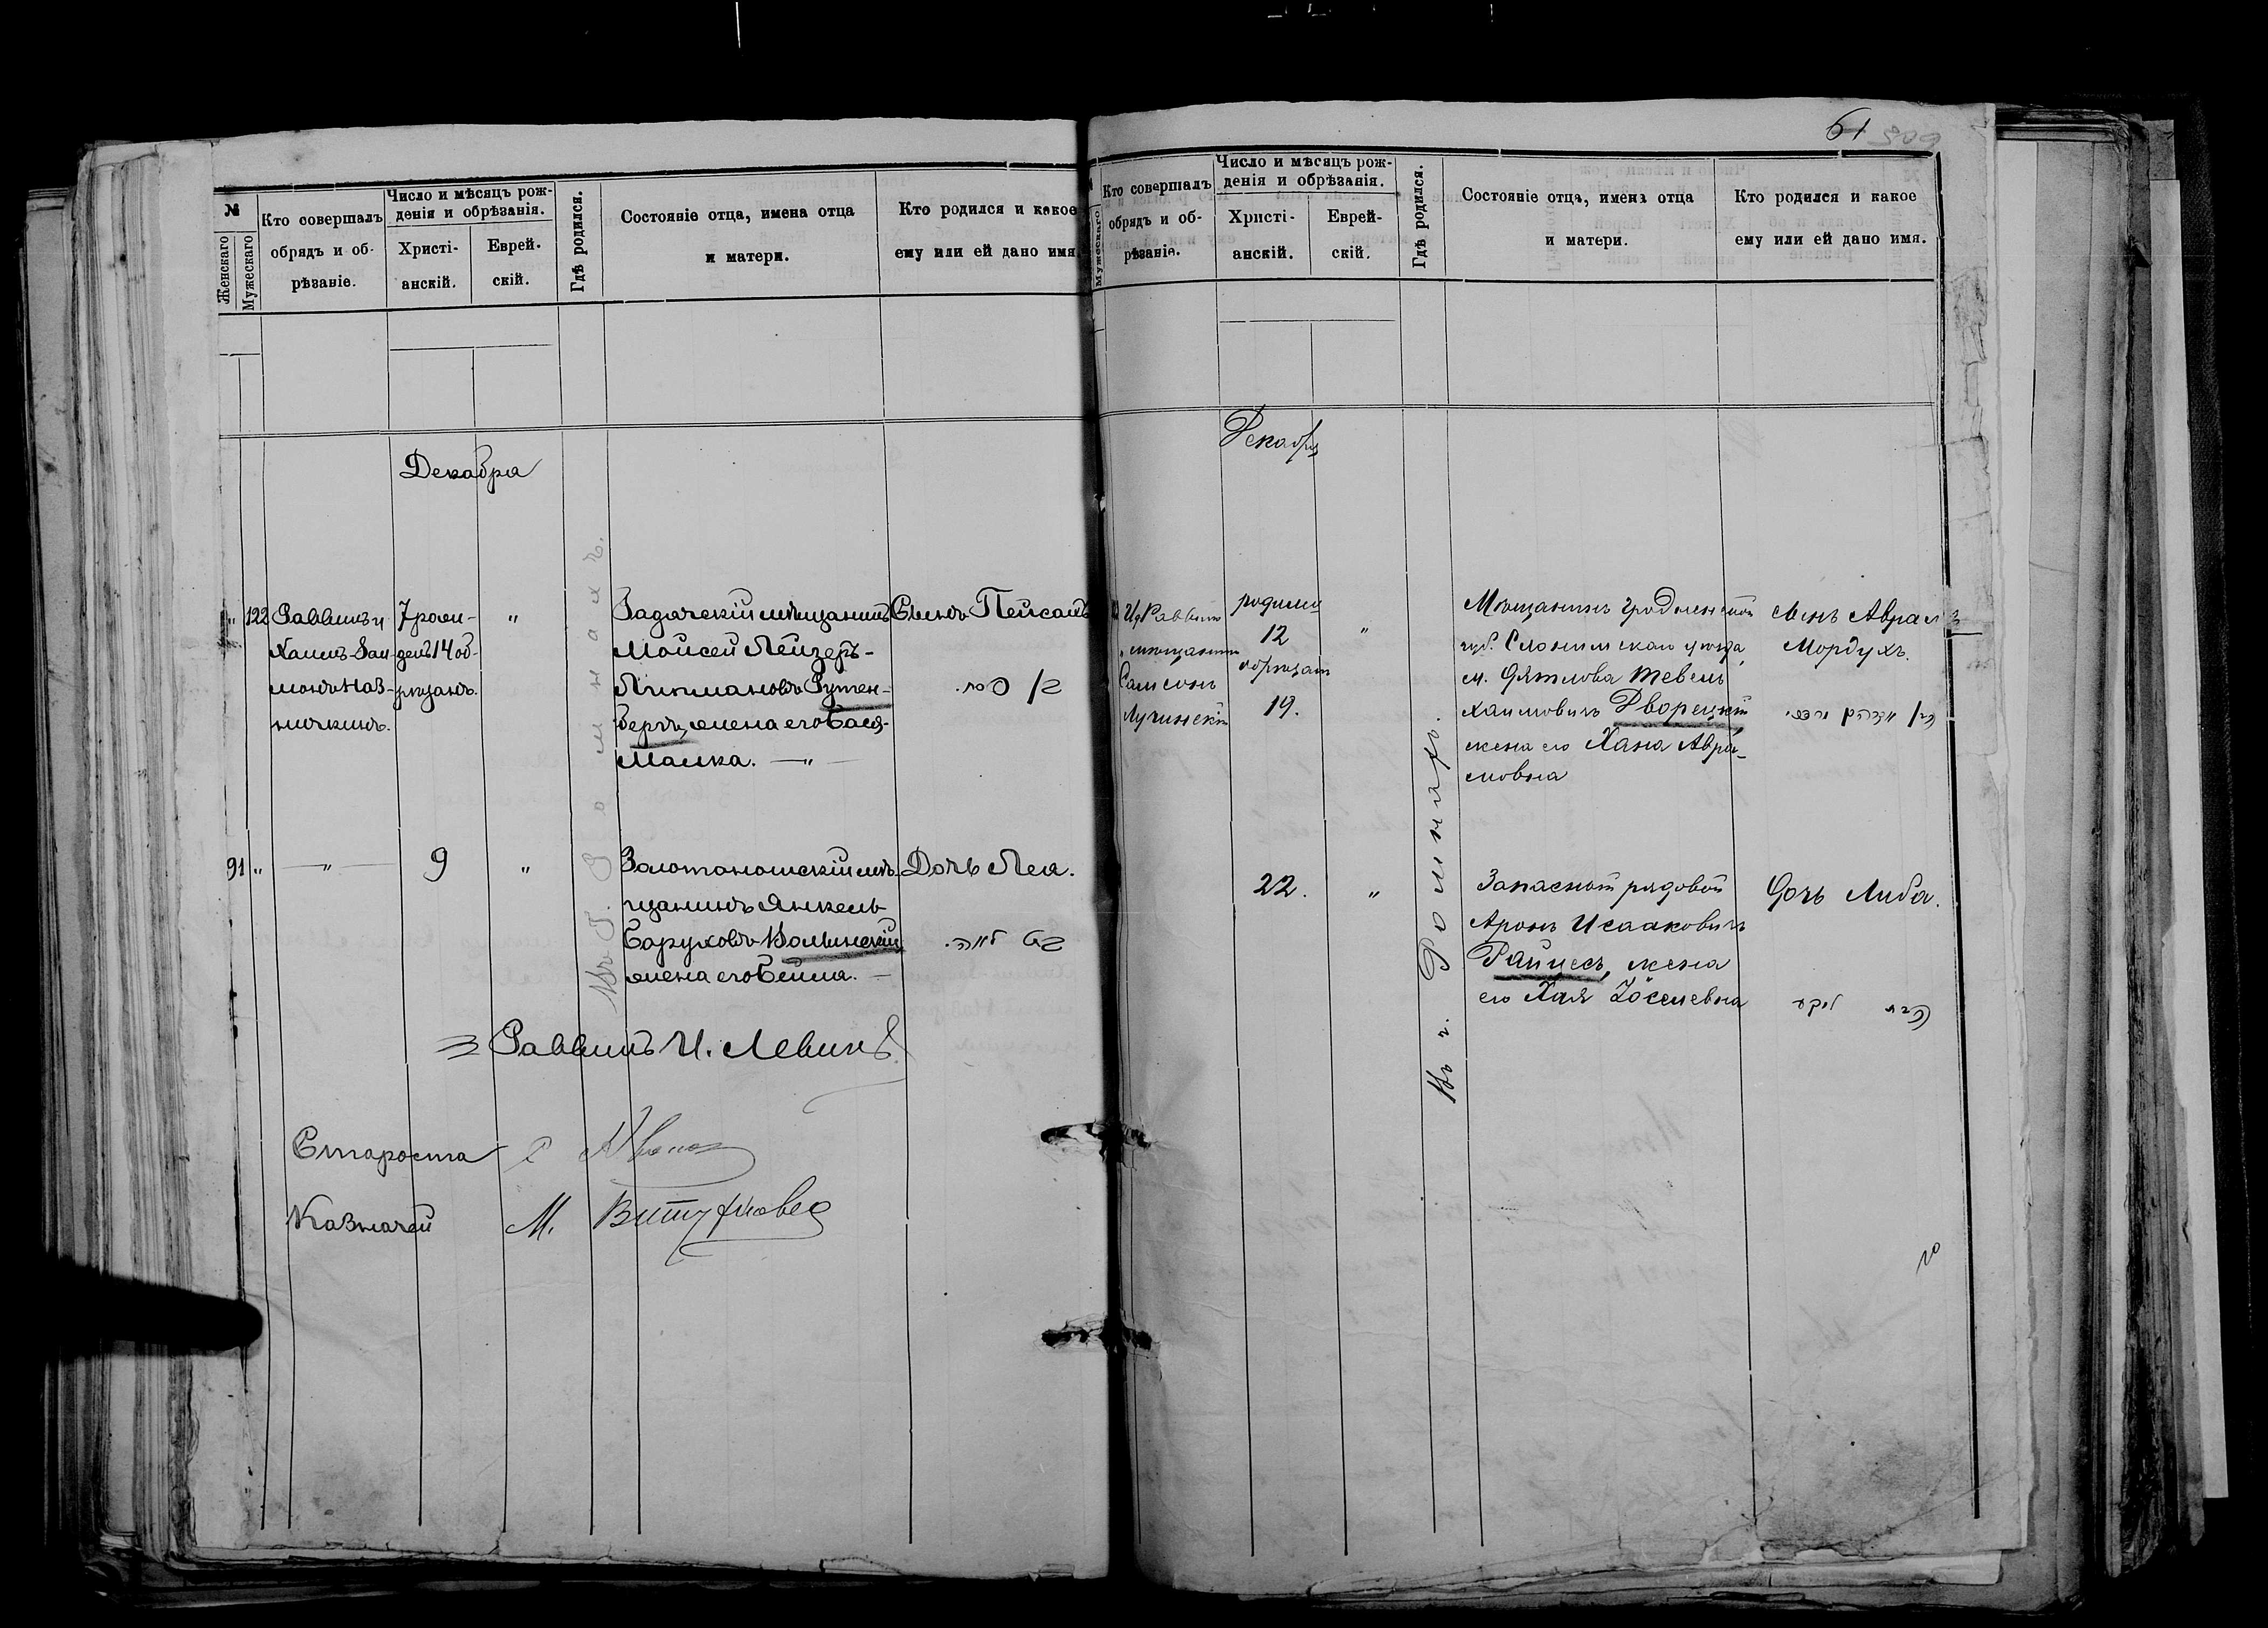 №
Женскаго
Мужескаго
Кто совершалъ
обрядъ и об-
рѣзаніе.
Число и мѣсяцъ рож-
денія и обрѣзанія.
Христі-
анскій.
Еврей-
скій.
Гдѣ родился.
Состояніе отца, имена отца
и матери.
Кто родился и какое
ему или ей дано имя
Декабря
"
122
Раввинъ и
Хаимъ-Зал
монъ Наз-
ничкинъ.
7 рож-
денъ 14 об-
рѣзанъ.
"
Въ Г. Ромнахъ.
Задячскій мѣщанинъ
Мойсей Лейзеръ-
Липмановъ Рутен-
бергъ, жена его Бася-
Малка. — " —
Сынъ Пейсахъ
91
"
— " —
9
"
Золотоношскій мѣ-
щанинъ Янкель
Боруховъ Волынскій
жена его Бейла. —
Дочь Лея.
Раввинъ И. Левинъ
Староста
Казначей М.
61
Мужескаго
Кто совершалъ
обрядъ и об-
рѣзаніе.
Число и мѣсяцъ рож-
денія и обрѣзанія.
Христі-
анскій.
Еврей-
скій.
Гдѣ родился.
Состояніе отца, имена отца
и матери.
Кто родился и какое
ему или ей дано имя.
Декабря
Раввинъ
мѣщанинъ
Самсонъ
Лучинскій
родился
12
обрѣзанъ
19.
"
Въ г. Ромнахъ.
Мѣщанинъ Гродненской
губ. Слонимскаго уѣзда,
м. Дятлова Тевель
Хаимовичъ Дворецкій
жена его Хана Абра-
мовна
Сынъ Абрамъ
Мордухъ.
22.
"
Запасный рядовой
Аронъ Исааковичъ
Райцесъ, жена
его Хая Іоселевна
Дочь Либа.